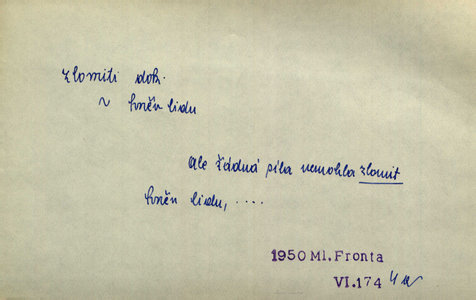 zlomiti dok.
~ hněv lidu
Ale žádná síla nemohla zlomit
hněv lidu, ....
1950 Ml. Fronta
VI.174